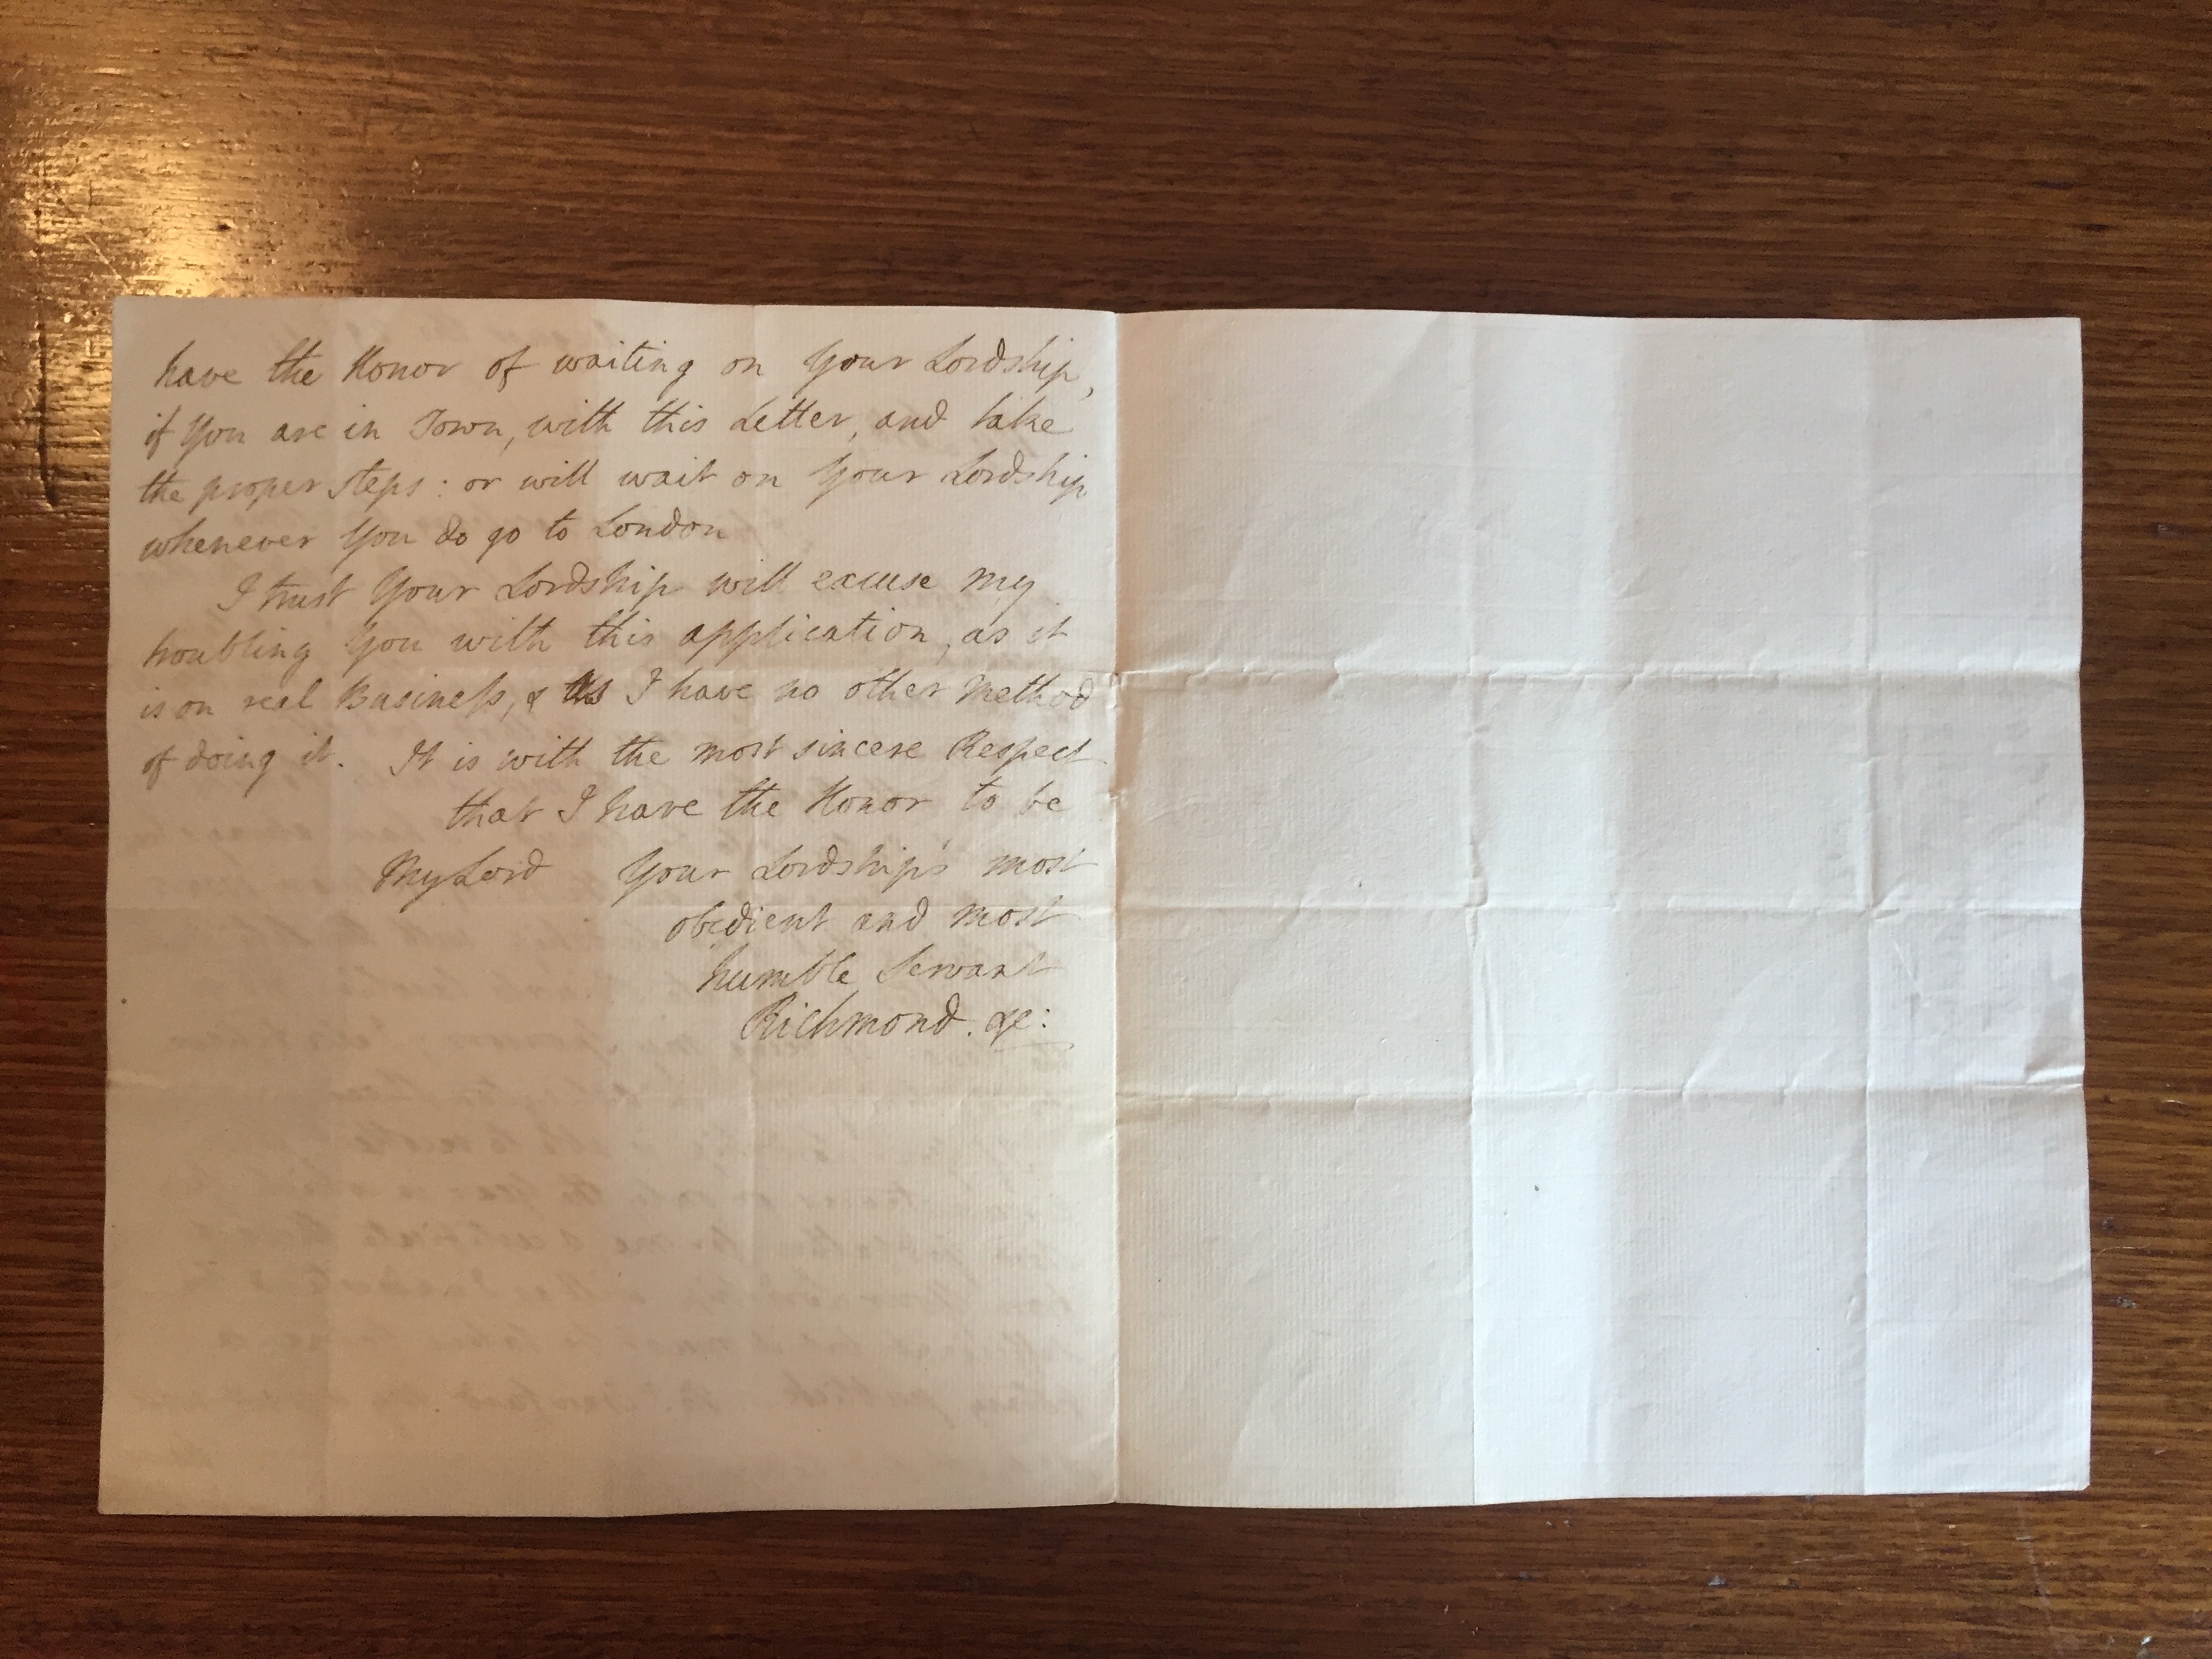 have the Honor of waiting on Your Lordship,
if You are in Town, with this Letter, and take
the proper steps: or will wait on Your Lordship
whenever You do go to London
I trust Your Lordship will excuse my
troubling You with this application, as it
is on real Business, & as I have no other Method
of doing it. It is with the most sincere Respect
that I have the Honor to be
My Lord Your Lordship's most
obedient and most
humble Servant
Richmond. &c: